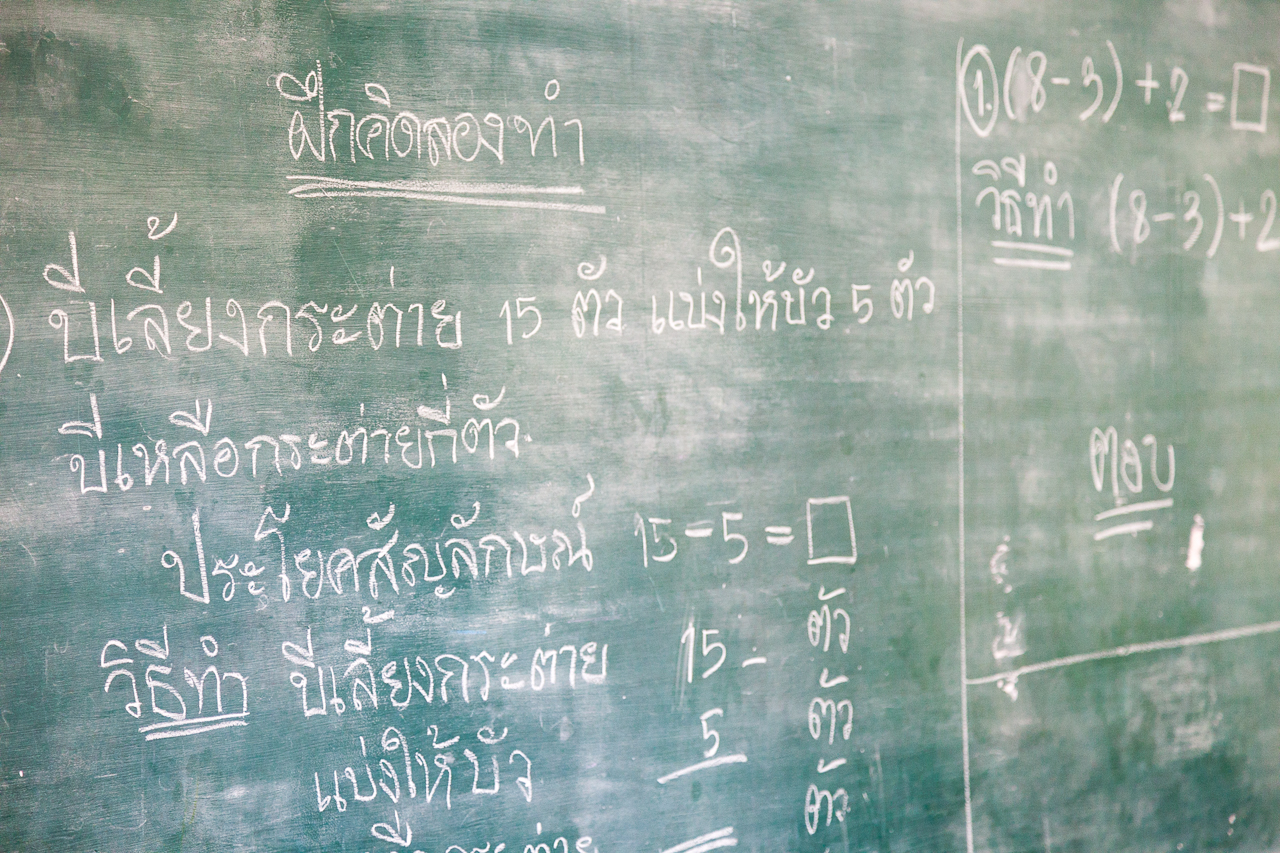 ฝึกคิดลองทำ
) ปีเลี้ยงกระต่าย 15 ตัว แบ่งให้บัว 5 ตัว
ปีเหลือกระต่ายกี่ตัว.
ประโยคสัญลักษณ์ 15-5 = □
วิธีทำ ปีเลี้ยงกระต่าย 15 - ตัว
แบ่งให้บัว 5 ตัว
กระต่าย ตัว
1. (8-3) + 2 = □
วิธีทำ (8-3)+2
ตอบ